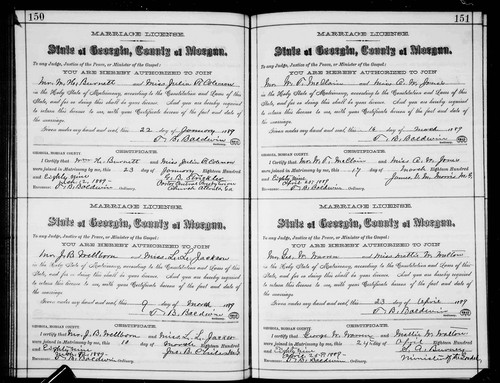 150
MARRIAGE LICENSE.
State of Georgia, County of Morgan.
To any Judge, Justice of the Peace, or Minister of the Gospel:
YOU ARE HEREBY AUTHORIZED TO JOIN
Mr. W. H. Burnett and Miss Julia
in the Holy State of Matrimony, according to the Constitution and Laws of this
State, and for so doing this shall be your license. And you are hereby required
to return this license to me, with your Certificate hereon of the fact and date of the
Marriage.
Given under my hand and seal, this 22 day of January 1889
B. Baldwin
GEORGIA, MORGAN COUNTY.
I Certify that Wm H. Burnett and Miss Julia
were joined in Matrimony by me, this 23 day of January Eighteen Hundred
and Eighty Nine
Recorded 1889
Baldwin Ordinary.
MARRIAGE LICENSE.
State of Georgia, County of Morgan.
To any Judge, Justice of the Peace, or Minister of the Gospel:
YOU ARE HEREBY AUTHORIZED TO JOIN
Mr. J. B. Wellborn and Miss L. L. Jackson
in the Holy State of Matrimony, according to the Constitution and Laws of this
State, and for so doing this shall be your license. And you are hereby required
to return this license to me, with your Certificate hereon of the fact and date of the
Marriage.
Given under my hand and seal, this 9 day of March 1889
B. Baldwin
GEORGIA, MORGAN COUNTY.
I certify that Mr. J. B. Wellborn and Miss L. L. Jackson
were joined in Matrimony by me, this 10 day of March Eighteen Hundred
and Eighty Nine
Recorded 1889
B. Baldwin Ordinary.
151
MARRIAGE LICENSE.
State of Georgia, County of Morgan.
To any Judge, Justice of the Peace, or Minister of the Gospel:
YOU ARE HEREBY AUTHORIZED TO JOIN
Mr. W. and Miss
in the Holy State of Matrimony, according to the Constitution and Laws of this
State, and for so doing this shall be your license. And you are hereby required
to return this license to me, with your Certificate hereon of the fact and date of the
Marriage.
Given under my hand and seal, this 16 day of March 1889
B. Baldwin
GEORGIA, MORGAN COUNTY.
I Certify that Mr. W. and Miss
were joined in Matrimony by me, this 17 day of March Eighteen Hundred
and Eighty Nine
Recorded April 1889
B. Baldwin Ordinary.
MARRIAGE LICENSE.
State of Georgia, County of Morgan.
To any Judge, Justice of the Peace, or Minister of the Gospel:
YOU ARE HEREBY AUTHORIZED TO JOIN
Mr. Geo. W. and Miss Mattie W. Walton
in the Holy State of Matrimony, according to the Constitution and Laws of this
State, and for so doing this shall be your license. And you are hereby required
to return this license to me, with your Certificate hereon of the fact and date of the
Marriage.
Given under my hand and seal, this 23 day of April 1889
B. Baldwin
GEORGIA, MORGAN COUNTY.
I certify that George W. and Mattie W. Walton
were joined in Matrimony by me, this day of April Eighteen Hundred
and Eighty Nine
Recorded April 1889
B. Baldwin Ordinary.